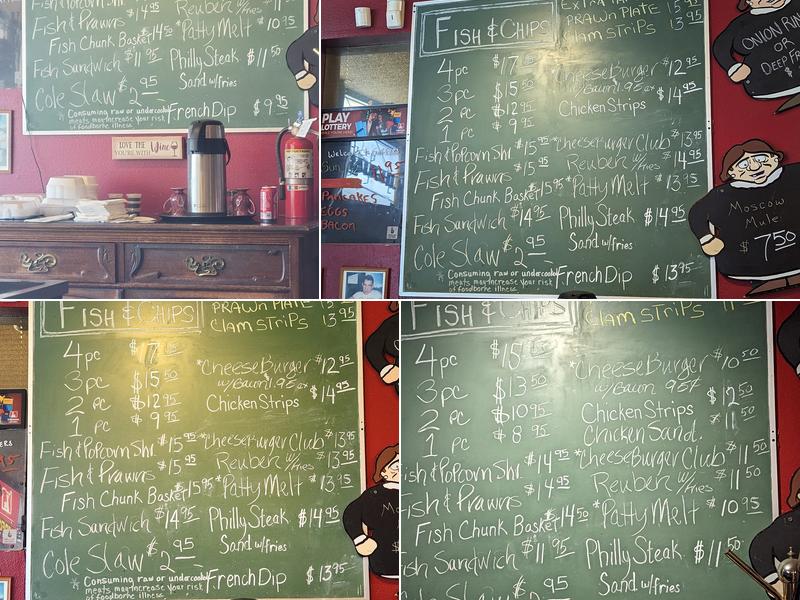 Fish & Prawns $14.95 Reuben w/fries $11
Fish Chunk Basket $14.50 *Patty Melt $10.95
Fish Sandwich $11.95 Philly Steak $11.50
Sand w/fries
Cole Slaw $2.95
*Consuming raw or undercooked
meats may increase your risk
of foodborne illness.
French Dip $9.95
LOVE THE
Wine
YOU'RE WITH
FISH & CHIPS
PRAWN PLATE 15
CLAM STRIPS 13.95
4pc $17
3pc $15
2pc $12.95
1pc $9.95
*Cheese Burger $12.95
w/Bacon 1.95 at $14.95
Chicken Strips
Fish & Popcorn Shr. $15.95 *Cheese Burger Club $13.95
Fish & Prawns $15.95 Reuben w/fries $14.95
Fish Chunk Basket $15.95 *Patty Melt $13.95
Fish Sandwich $14.95 Philly Steak $14.95
Sand w/fries
Cole Slaw $2.95
*Consuming raw or undercooked
meats may increase your risk
of foodborne illness.
French Dip $13.95
PLAY
LOTTERY
PANCAKES
EGGS
BACON
ONION RINGS
OR
DEEP FR
Moscow
Mule
$7.50
FISH & CHIPS
PRAWN PLATE
CLAM STRIPS 13.95
4pc $17
3pc $15.50
2pc $12.95
1pc $9.95
*Cheese Burger $12.95
w/Bacon 1.95 at $14.95
Chicken Strips
Fish & Popcorn Shr. $15.95 *Cheese Burger Club $13.95
Fish & Prawns $15.95 Reuben w/fries $14.95
Fish Chunk Basket $15.95 *Patty Melt $13.95
Fish Sandwich $14.95 Philly Steak $14.95
Sand w/fries
Cole Slaw $2.95
*Consuming raw or undercooked
meats may increase your risk
of foodborne illness.
French Dip $13.95
FISH & CHIPS
CLAM STRIPS
4pc $15
3pc $13.50
2pc $10.95
1pc $8.95
*Cheese Burger $10.50
w/Bacon 95¢
Chicken Strips $12.50
Chicken Sand. $11.50
ish & Popcorn Shr. $14.95 *Cheese Burger Club $11.50
Fish & Prawns $14.95 Reuben w/fries $11.50
Fish Chunk Basket $14.50 *Patty Melt $10.95
ish Sandwich $11.95 Philly Steak $11.50
Sand w/fries
Cole Slaw $2.95